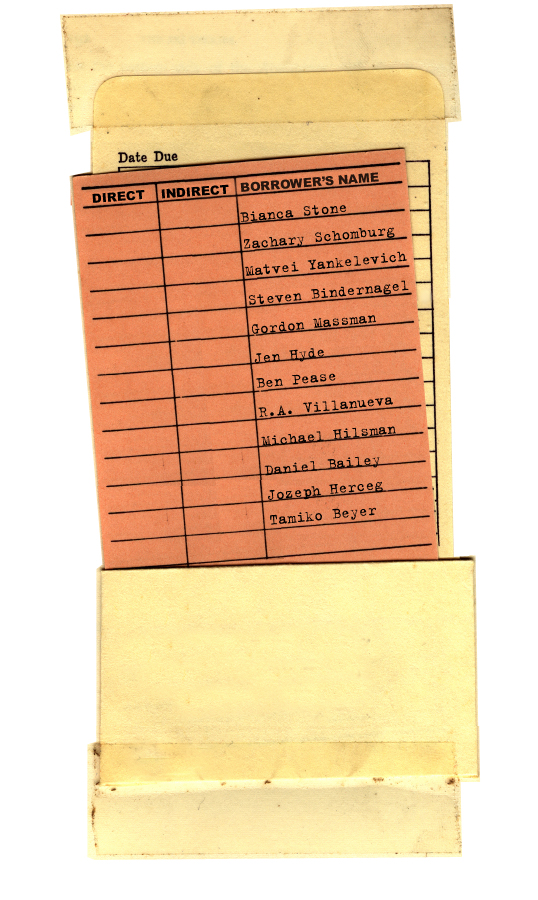 Date Due
DIRECT INDIRECT BORROWER'S NAME
Bianca Stone
Zachary Schomburg
Matvei Yankelevich
Steven Bindernagel
Gordon Massman
Jen Hyde
Ben Pease
R.A. Villanueva
Michael Hilsman
Daniel Bailey
Jozeph Herceg
Tamiko Beyer